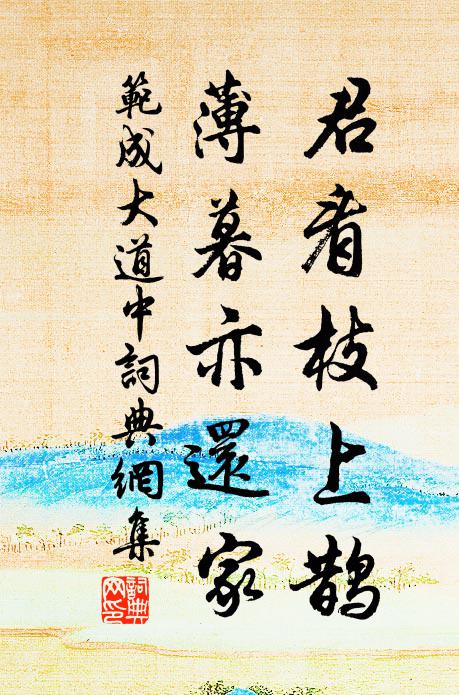 君看枝上鹊
薄暮亦還家
範成大道中詞典網集
詞典网印